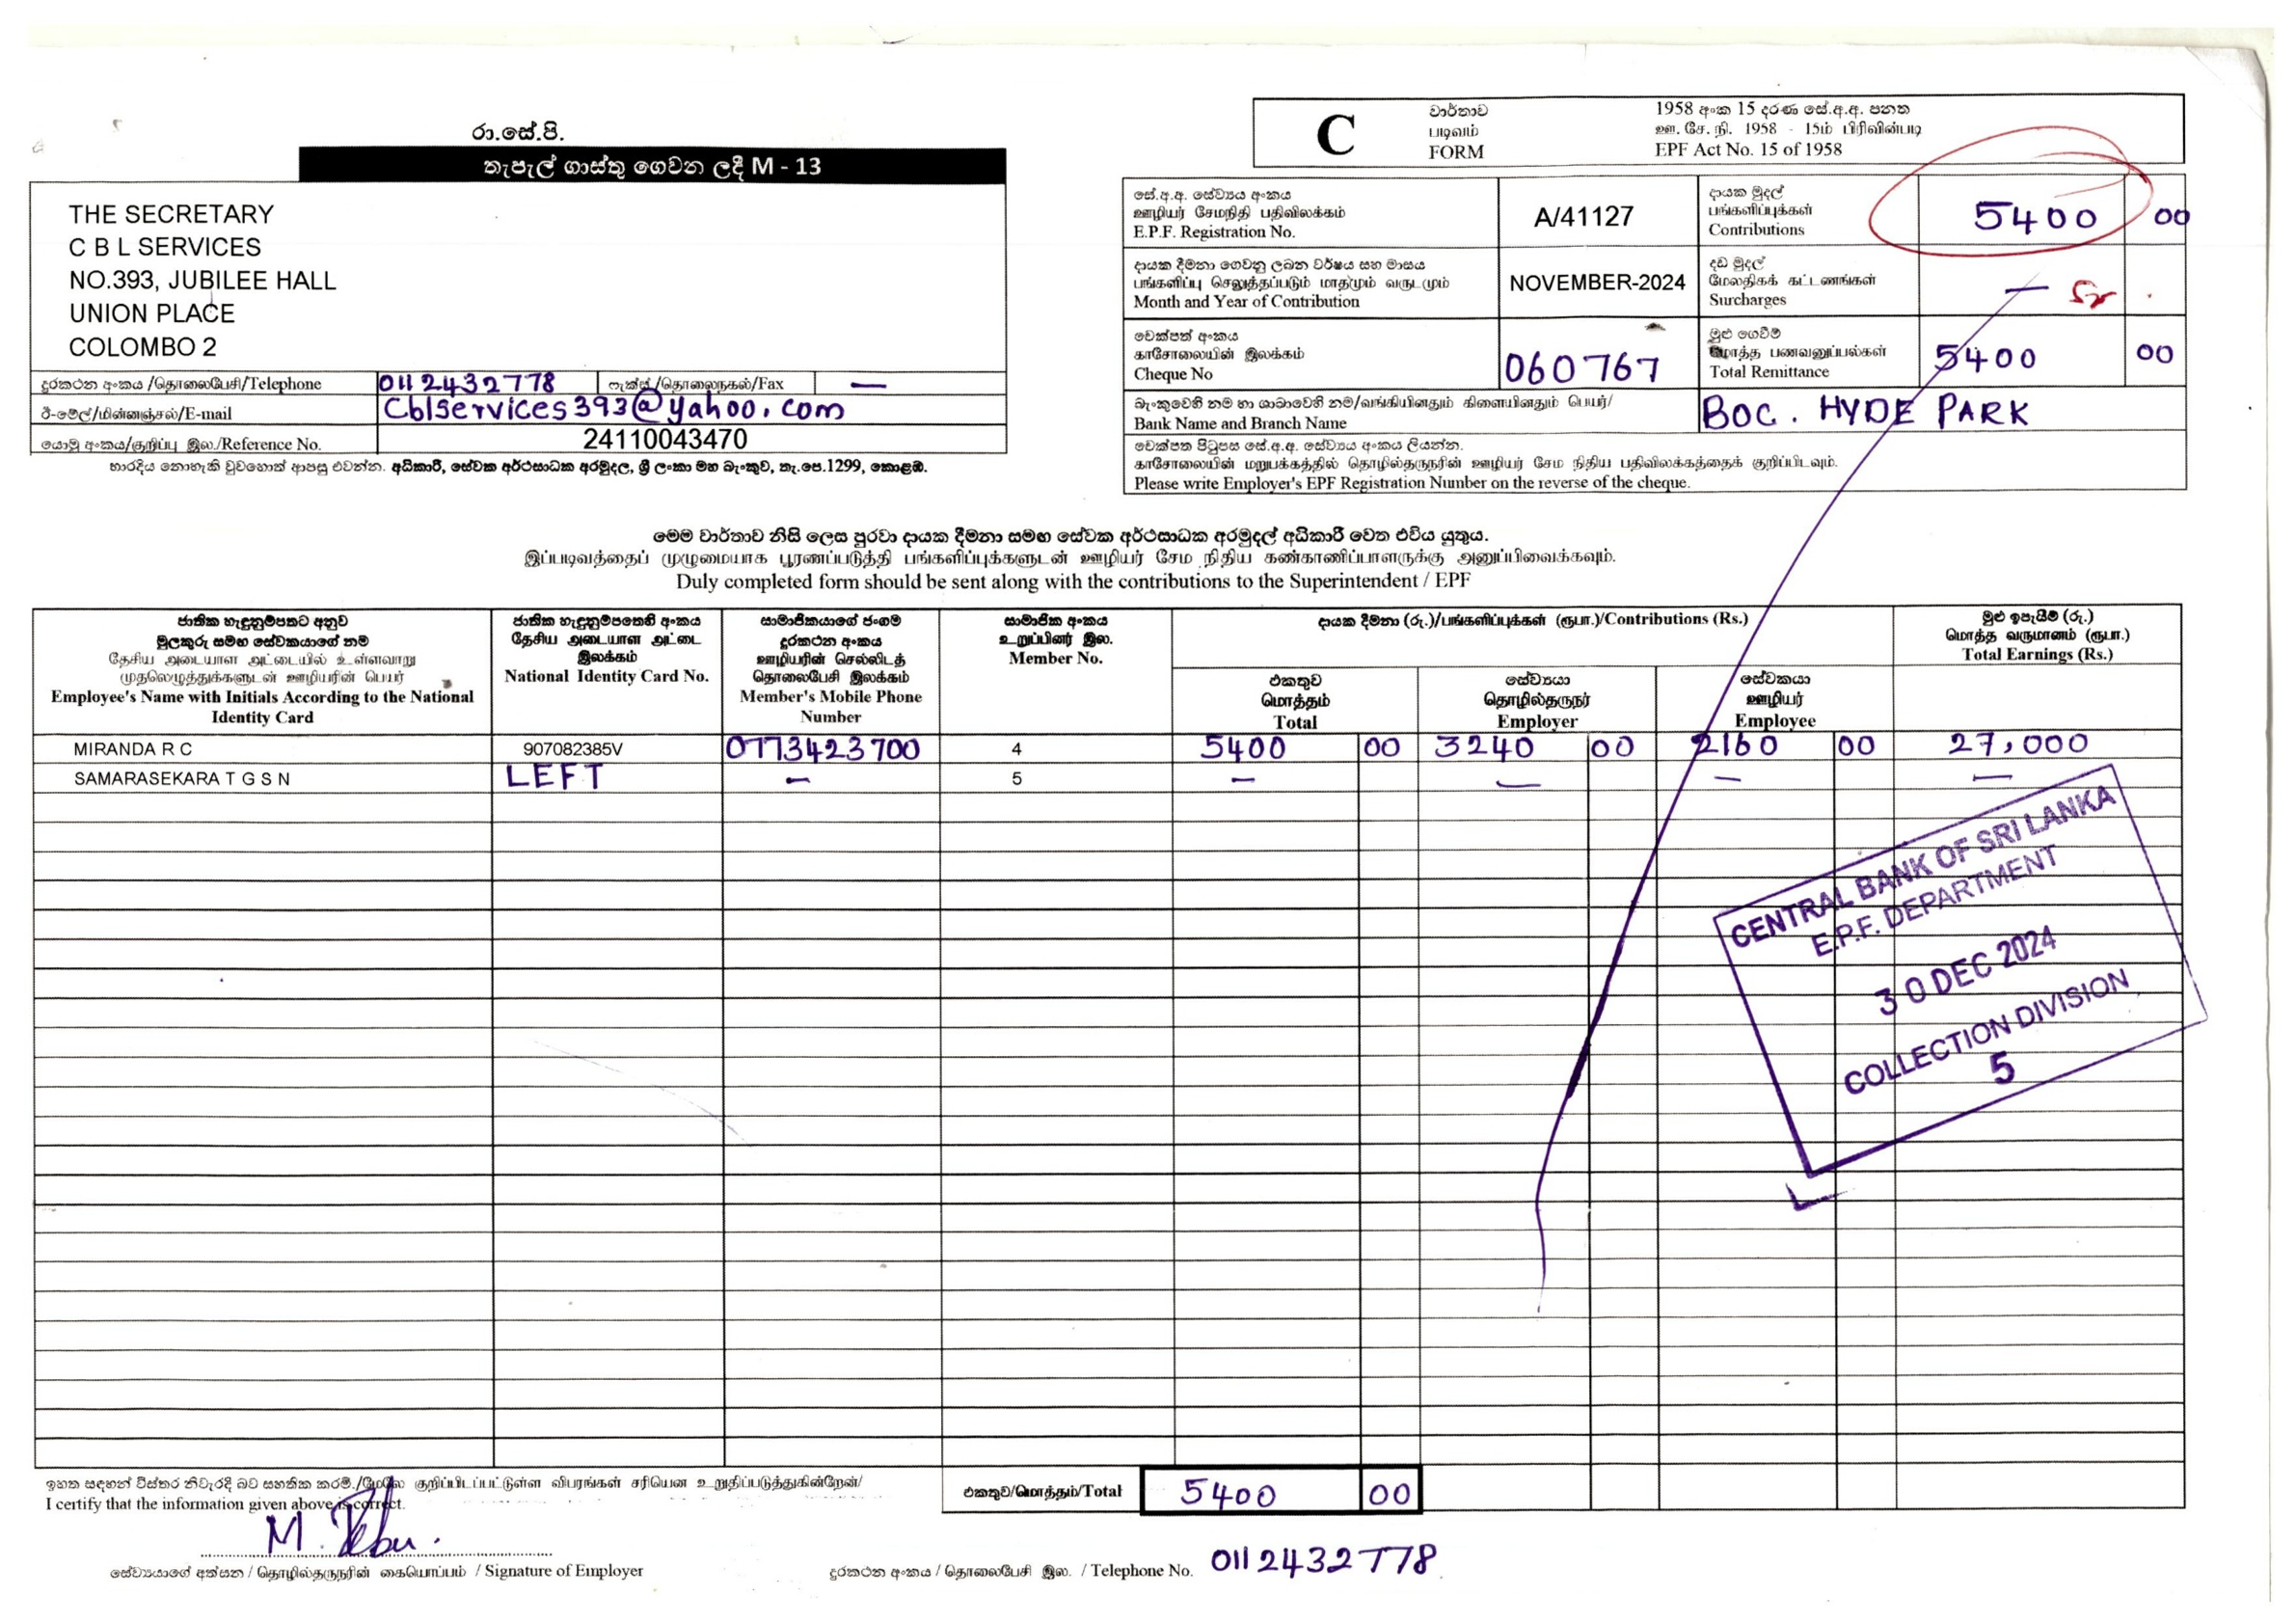 රා.සේ.පි.
තැපැල් ගාස්තු ගෙවන ලදී M - 13
THE SECRETARY
C B L SERVICES
NO.393, JUBILEE HALL
UNION PLACE
COLOMBO 2
දුරකථන අංකය /தொலைபேசி/Telephone 0112432778 ෆැක්ස් /தொலைநகல்/Fax —
ඊ-මේල්/மின்னஞ்சல்/E-mail Cblservices393@yahoo.com
යොමු අංකය/குறிப்பு இல./Reference No. 24110043470
භාරදිය නොහැකි වුවහොත් ආපසු එවන්න. අධිකාරී, සේවක අර්ථසාධක අරමුදල, ශ්‍රී ලංකා මහ බැංකුව, තැ.පෙ.1299, කොළඹ.
C
වාර්තාව
படிவம்
FORM
1958 අංක 15 දරණ සේ.අ.අ. පනත
ஊ. சே. நி. 1958 - 15ம் பிரிவின்படி
EPF Act No. 15 of 1958
සේ.අ.අ. සේව්‍යය අංකය
ஊழியர் சேமநிதி பதிவிலக்கம்
E.P.F. Registration No.
A/41127
දායක මුදල්
பங்களிப்புக்கள்
Contributions
5400 00
දායක දීමනා ගෙවනු ලබන වර්ෂය සහ මාසය
பங்களிப்பு செலுத்தப்படும் மாதமும் வருடமும்
Month and Year of Contribution
NOVEMBER-2024
දඩ මුදල්
மேலதிகக் கட்டணங்கள்
Surcharges
—
චෙක්පත් අංකය
காசோலையின் இலக்கம்
Cheque No
060767
මුළු ගෙවීම්
மொத்த பணவனுப்பல்கள்
Total Remittance
5400 00
බැංකුවෙහි නම හා ශාඛාවෙහි නම/வங்கியினதும் கிளையினதும் பெயர்/
Bank Name and Branch Name
BOC. HYDE PARK
චෙක්පත පිටුපස සේ.අ.අ. සේව්‍යය අංකය ලියන්න.
காசோலையின் மறுபக்கத்தில் தொழில்தருநரின் ஊழியர் சேம நிதிய பதிவிலக்கத்தைக் குறிப்பிடவும்.
Please write Employer's EPF Registration Number on the reverse of the cheque.
මෙම වාර්තාව නිසි ලෙස පුරවා දායක දීමනා සමඟ සේවක අර්ථසාධක අරමුදල් අධිකාරී වෙත එවිය යුතුය.
இப்படிவத்தைப் முழுமையாக பூரணப்படுத்தி பங்களிப்புக்களுடன் ஊழியர் சேம நிதிய கண்காணிப்பாளருக்கு அனுப்பிவைக்கவும்.
Duly completed form should be sent along with the contributions to the Superintendent / EPF
ජාතික හැඳුනුම්පතට අනුව
මුලකුරු සමඟ සේවකයාගේ නම
தேசிய அடையாள அட்டையில் உள்ளவாறு
முதலெழுத்துக்களுடன் ஊழியரின் பெயர்
Employee's Name with Initials According to the National
Identity Card
ජාතික හැඳුනුම්පතෙහි අංකය
தேசிய அடையாள அட்டை
இலக்கம்
National Identity Card No.
සාමාජිකයාගේ ජංගම
දුරකථන අංකය
ஊழியரின் செல்லிடத்
தொலைபேசி இலக்கம்
Member's Mobile Phone
Number
සාමාජික අංකය
உறுப்பினர் இல.
Member No.
දායක දීමනා (රු.)/பங்களிப்புக்கள் (ரூபா.)/Contributions (Rs.)
එකතුව
மொத்தம்
Total
සේව්‍යයා
தொழில்தருநர்
Employer
සේවකයා
ஊழியர்
Employee
මුළු ඉපැයීම් (රු.)
மொத்த வருமானம் (ரூபா.)
Total Earnings (Rs.)
MIRANDA R C 907082385V 0773423700 4 5400 00 3240 00 2160 00 27,000
SAMARASEKARA T G S N LEFT — 5 — — — —
CENTRAL BANK OF SRI LANKA
E.P.F. DEPARTMENT
30 DEC 2024
COLLECTION DIVISION
5
ඉහත සඳහන් විස්තර නිවැරදි බව සහතික කරමි./மேலே குறிப்பிடப்பட்டுள்ள விபரங்கள் சரியென உறுதிப்படுத்துகின்றேன்/
I certify that the information given above is correct.
එකතුව/மொத்தம்/Total 5400 00
සේව්‍යයාගේ අත්සන / தொழில்தருநரின் கையொப்பம் / Signature of Employer
දුරකථන අංකය / தொலைபேசி இல. / Telephone No. 0112432778